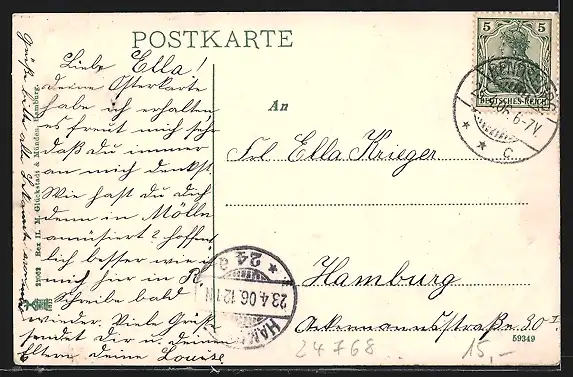 POSTKARTE
Liebe Ella!
Deine Osterkarte
habe ich erhalten
es freut mich sehr
daß du immer
an mich denkst.
Wie hast du dich
denn in Mölln
amüsiert? hoffent
lich besser wie ich
mich hier in R.
Schreibe bald
wieder. Viele Grüße
sendet dir u. deinen
Eltern deine Louise.
Grüße bitte alle
Rex II. M. Glückstadt & Münden, Hamburg.
5 5
DEUTSCHES REICH
6-7V.
* * c
An
Frl Ella Krieger
Hamburg
Ackermannstraße 30 I
* 24 d
23.4.06.12-1N
HAM
59349
24768
15,-